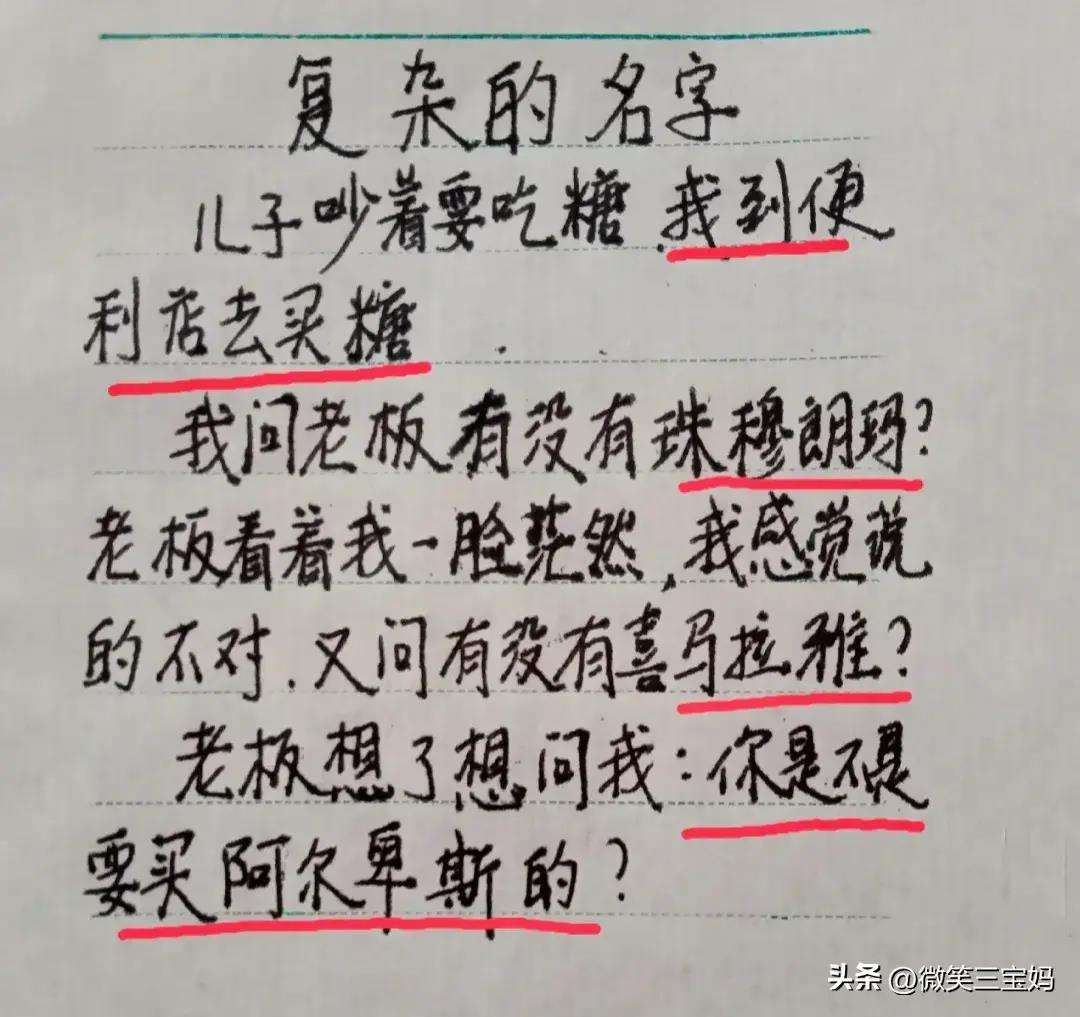 复杂的名字
儿子吵着要吃糖,我到便
利店去买糖.
我问老板有没有珠穆朗玛?
老板看着我一脸茫然,我感觉说
的不对.又问有没有喜马拉雅?
老板想了想问我:你是不是
要买阿尔卑斯的?
头条 @微笑三宝妈